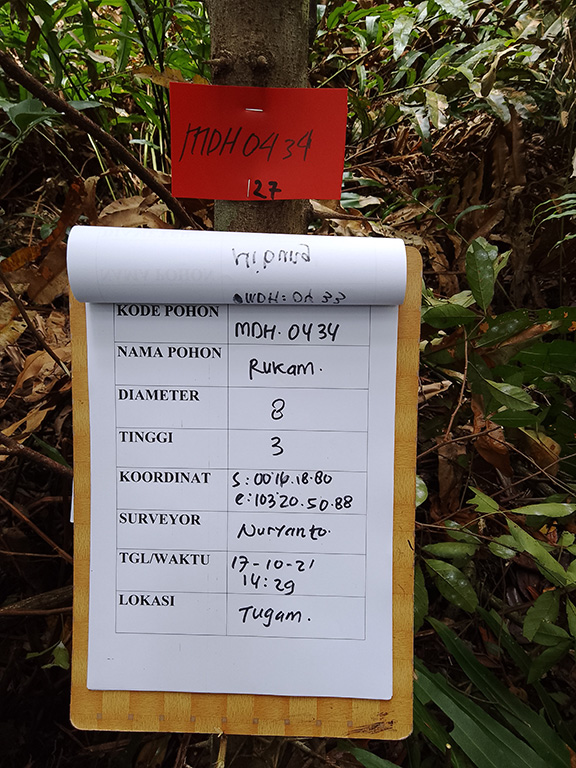 MDH 0434
127
MDH: 04 33
KODE POHON MDH. 0434
NAMA POHON Rukam.
DIAMETER 8
TINGGI 3
KOORDINAT S: 00°16.18.80
e: 103°20.50.88
SURVEYOR Nuryanto.
TGL/WAKTU 17-10-21
14:29
LOKASI Tugam.